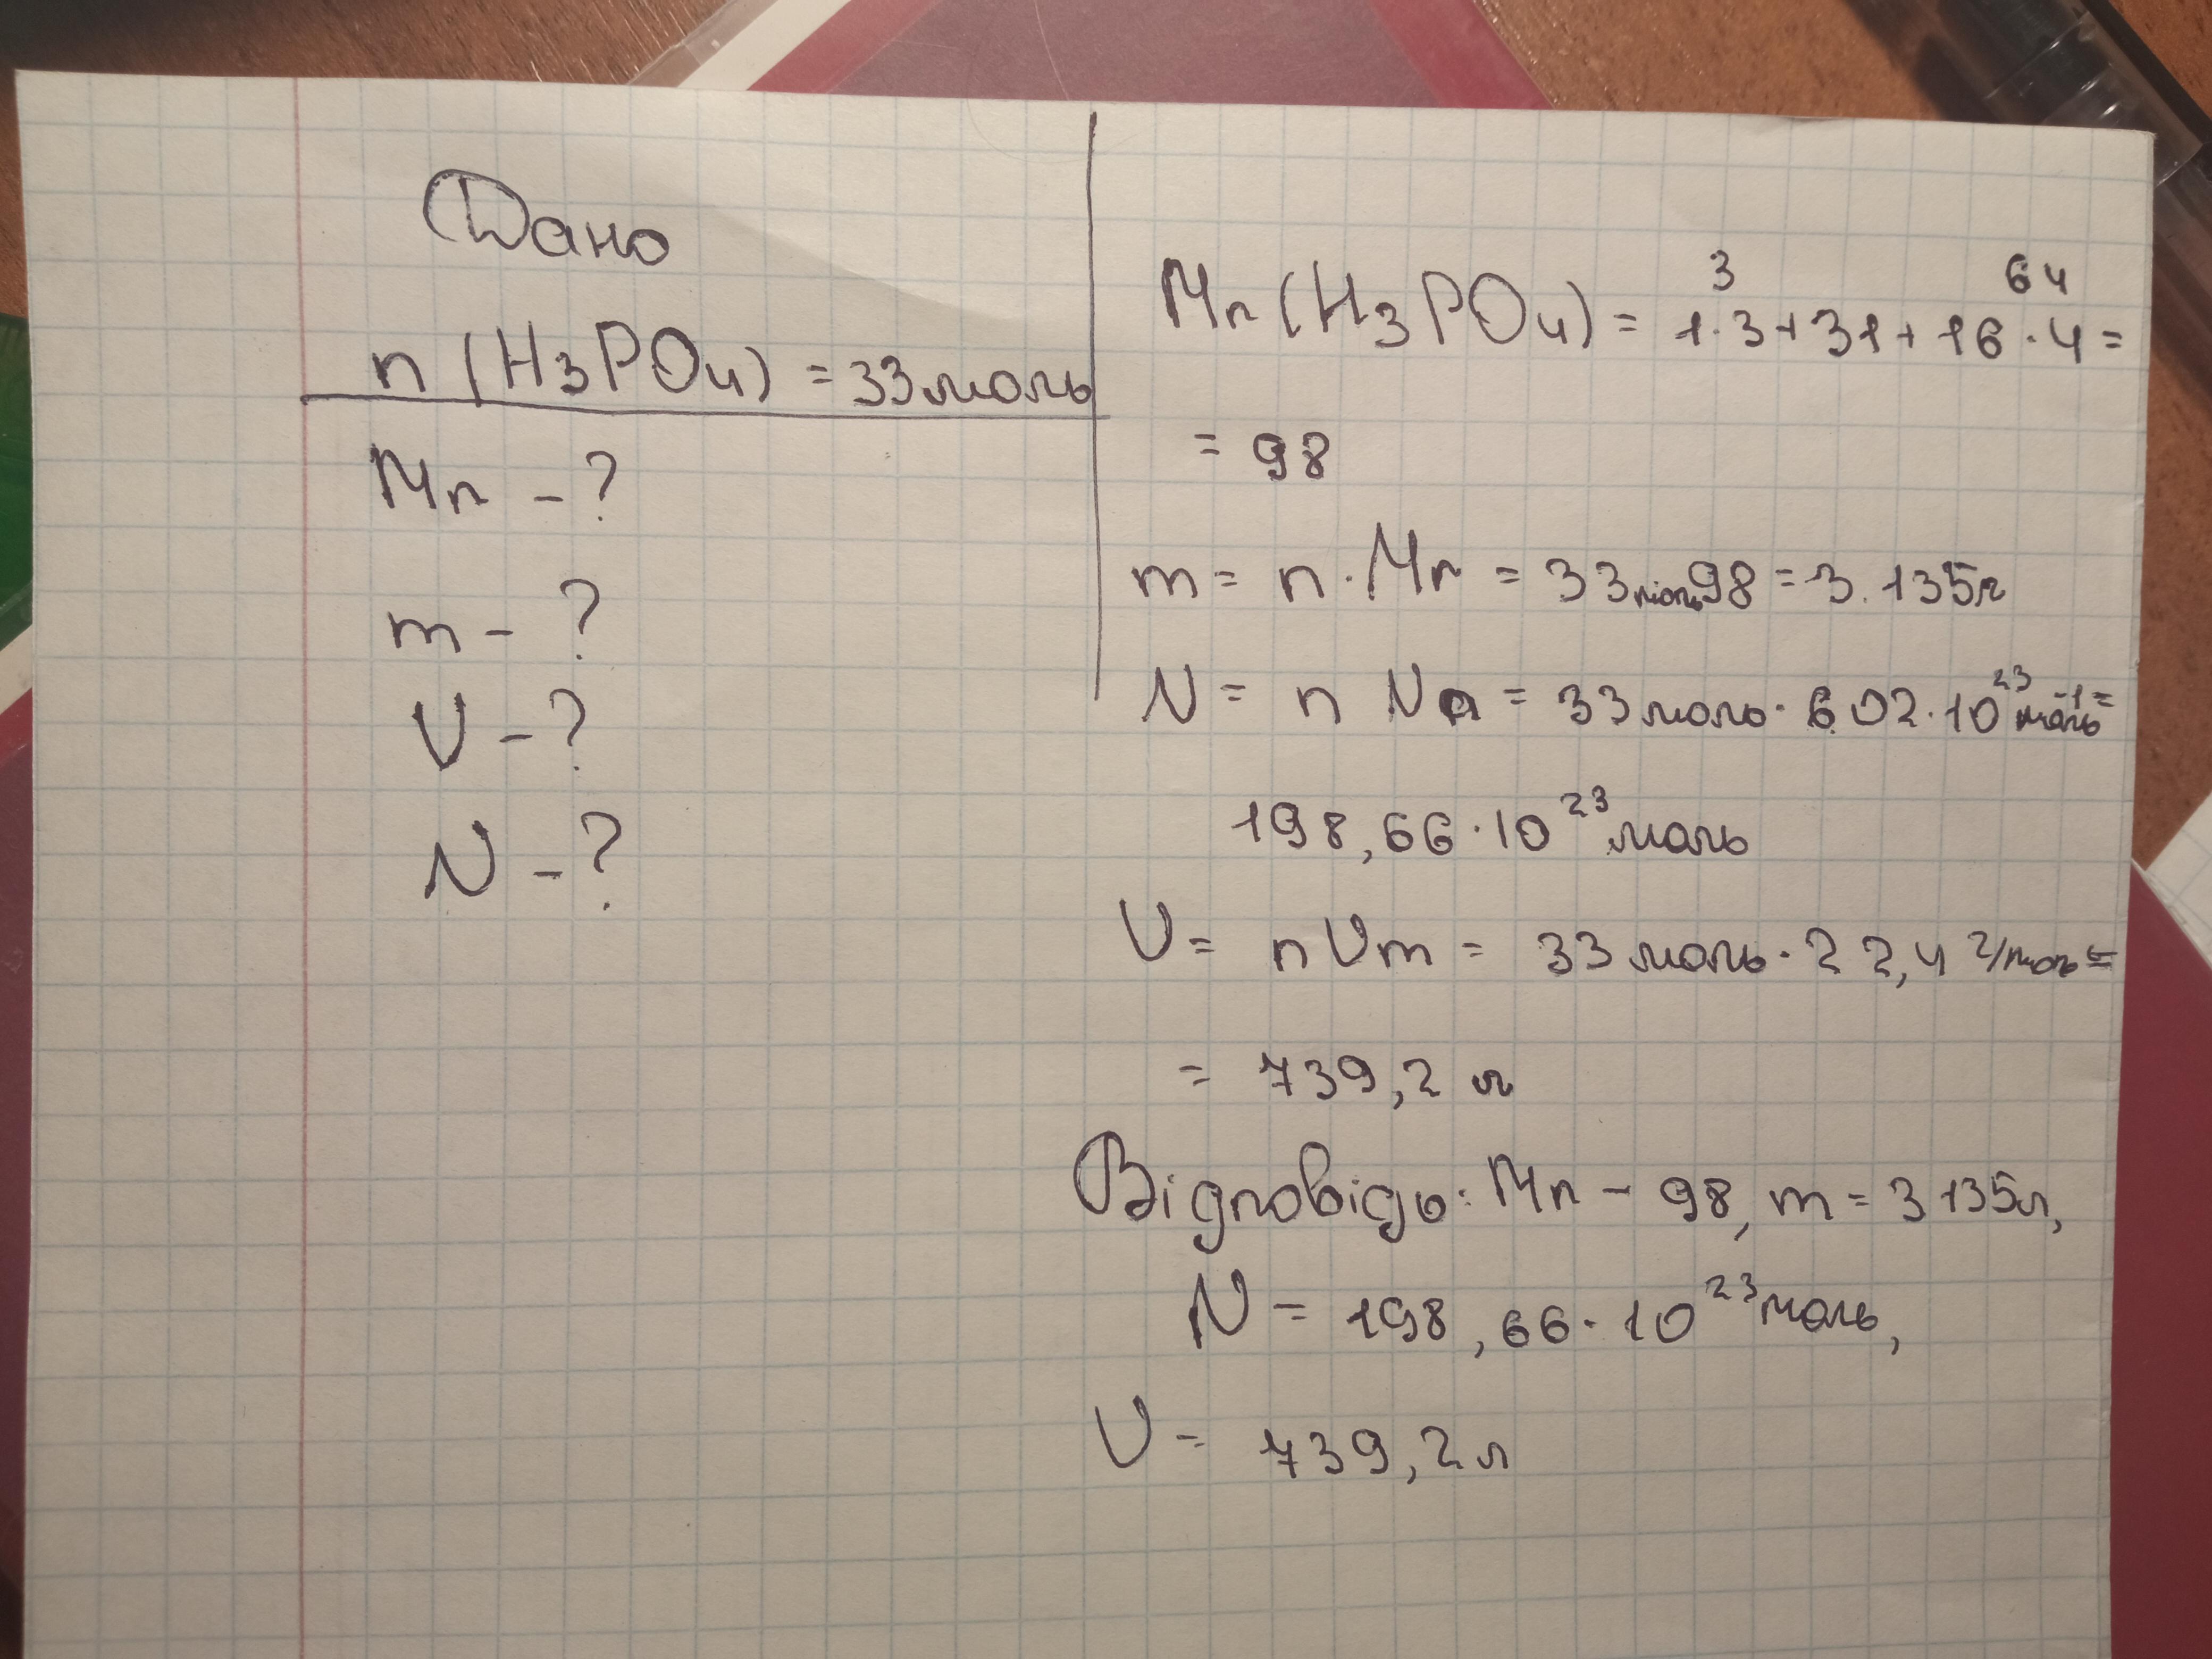 Дано
n (H3PO4) = 33 моль
Mr - ?
m - ?
V - ?
N - ?
3 64
Mr (H3PO4) = 1·3+31+16·4=
= 98
m = n · Mr = 33моль98 = 3.135г
N = n Na = 33 моль · 6.02·10²³ моль⁻¹=
198,66·10²³ моль
V = n Vm = 33 моль · 22,4 г/моль=
= 739,2 л
Відповідь: Mr - 98, m = 3135г,
N = 198,66·10²³ моль,
V = 739,2л